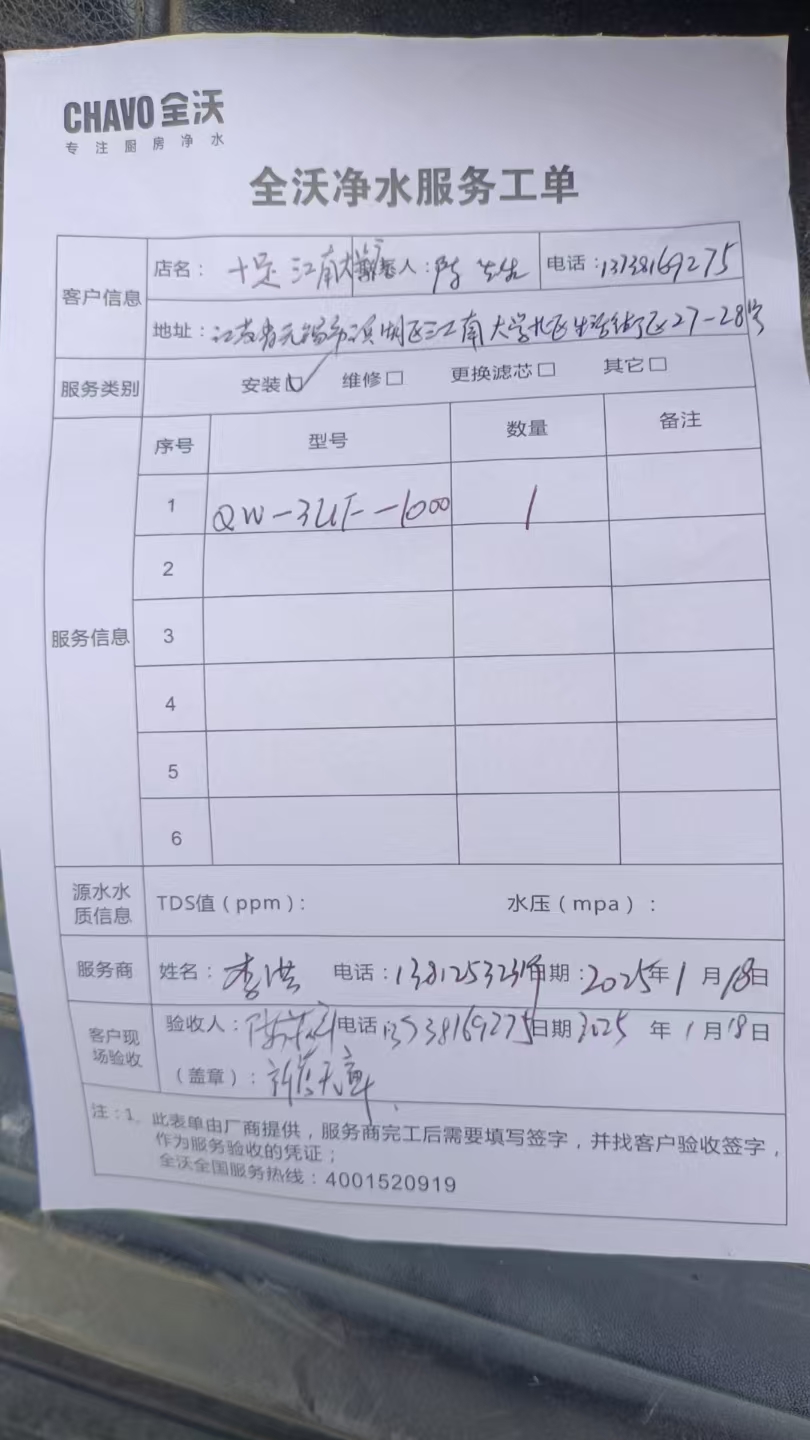 CHAVO 全沃
专注厨房净水
全沃净水服务工单
客户信息
店名： 十足 江南大 联系人：陈先生 电话：13738169275
地址：江苏省无锡市滨湖区江南大学北区生活街区27-28号
服务类别 安装☑ 维修□ 更换滤芯□ 其它□
服务信息
序号 型号 数量 备注
1 QW-3UF-1000 1
2
3
4
5
6
源水水质信息 TDS值（ppm）： 水压（mpa）：
服务商 姓名：李洪 电话：1381253231 日期：2025年1月18日
客户现场验收 验收人：陈 电话13738169275日期2025年1月18日
（盖章）：
注：1、此表单由厂商提供，服务商完工后需要填写签字，并找客户验收签字，
作为服务验收的凭证；
全沃全国服务热线：4001520919